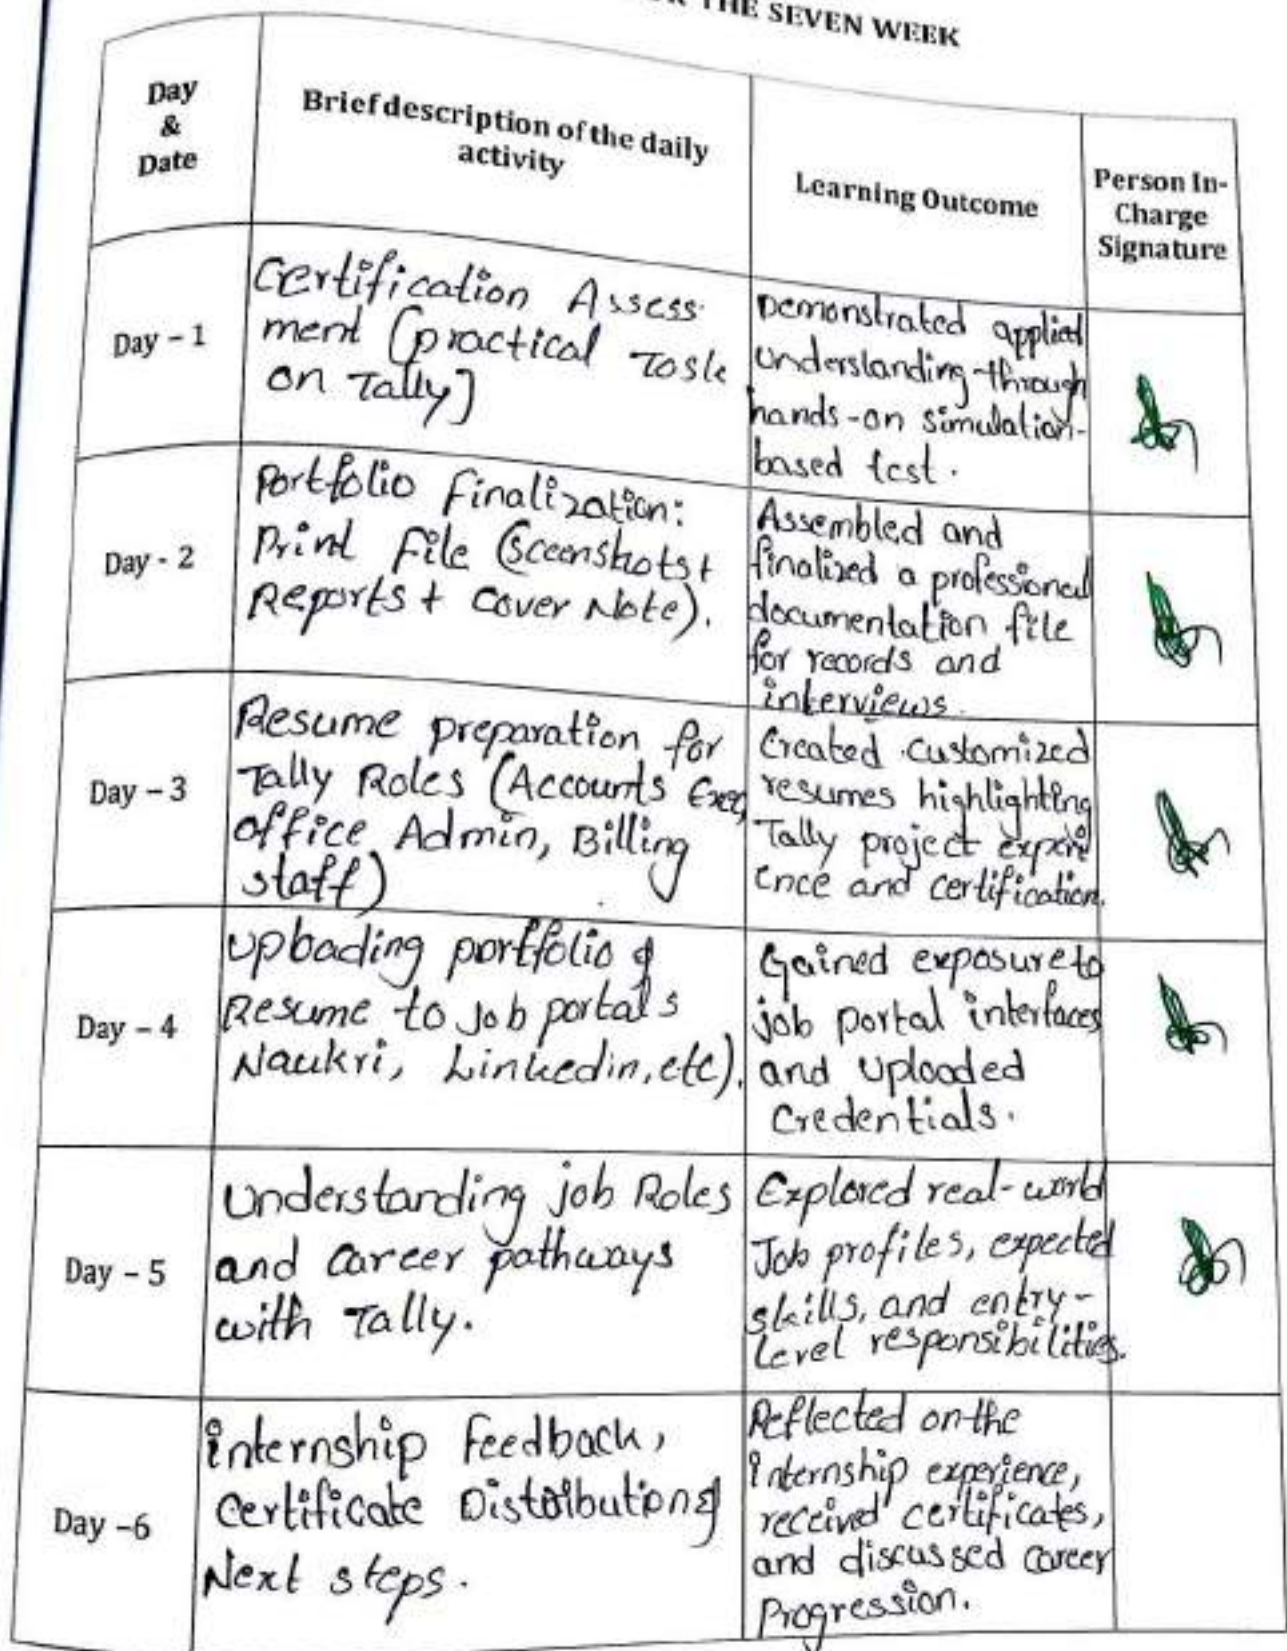 THE SEVEN WEEK
Day
&
Date
Brief description of the daily
activity
Learning Outcome
Person In-
Charge
Signature
Day – 1
Certification Assess-
ment (practical Task
on Tally]
Demonstrated applied
understanding through
hands-on simulation-
based test.
Day - 2
Portfolio Finalization:
Print File (Sceenshots +
Reports + Cover Note).
Assembled and
finalized a professional
documentation file
for records and
interviews.
Day – 3
Resume preparation for
Tally Roles (Accounts Exec,
office Admin, Billing
staff)
Created customized
resumes highlighting
Tally project experi
ence and certification.
Day – 4
Uploading portfolio &
Resume to Job portals
Naukri, Linkedin, etc).
Gained exposure to
job portal interfaces
and uploaded
Credentials.
Day – 5
Understanding job Roles
and Career pathways
with Tally.
Explored real-world
Job profiles, expected
skills, and entry-
level responsibilities.
Day –6
internship Feedback,
Certificate Distribution &
Next steps.
Reflected on the
internship experience,
received certificates,
and discussed career
Progression.